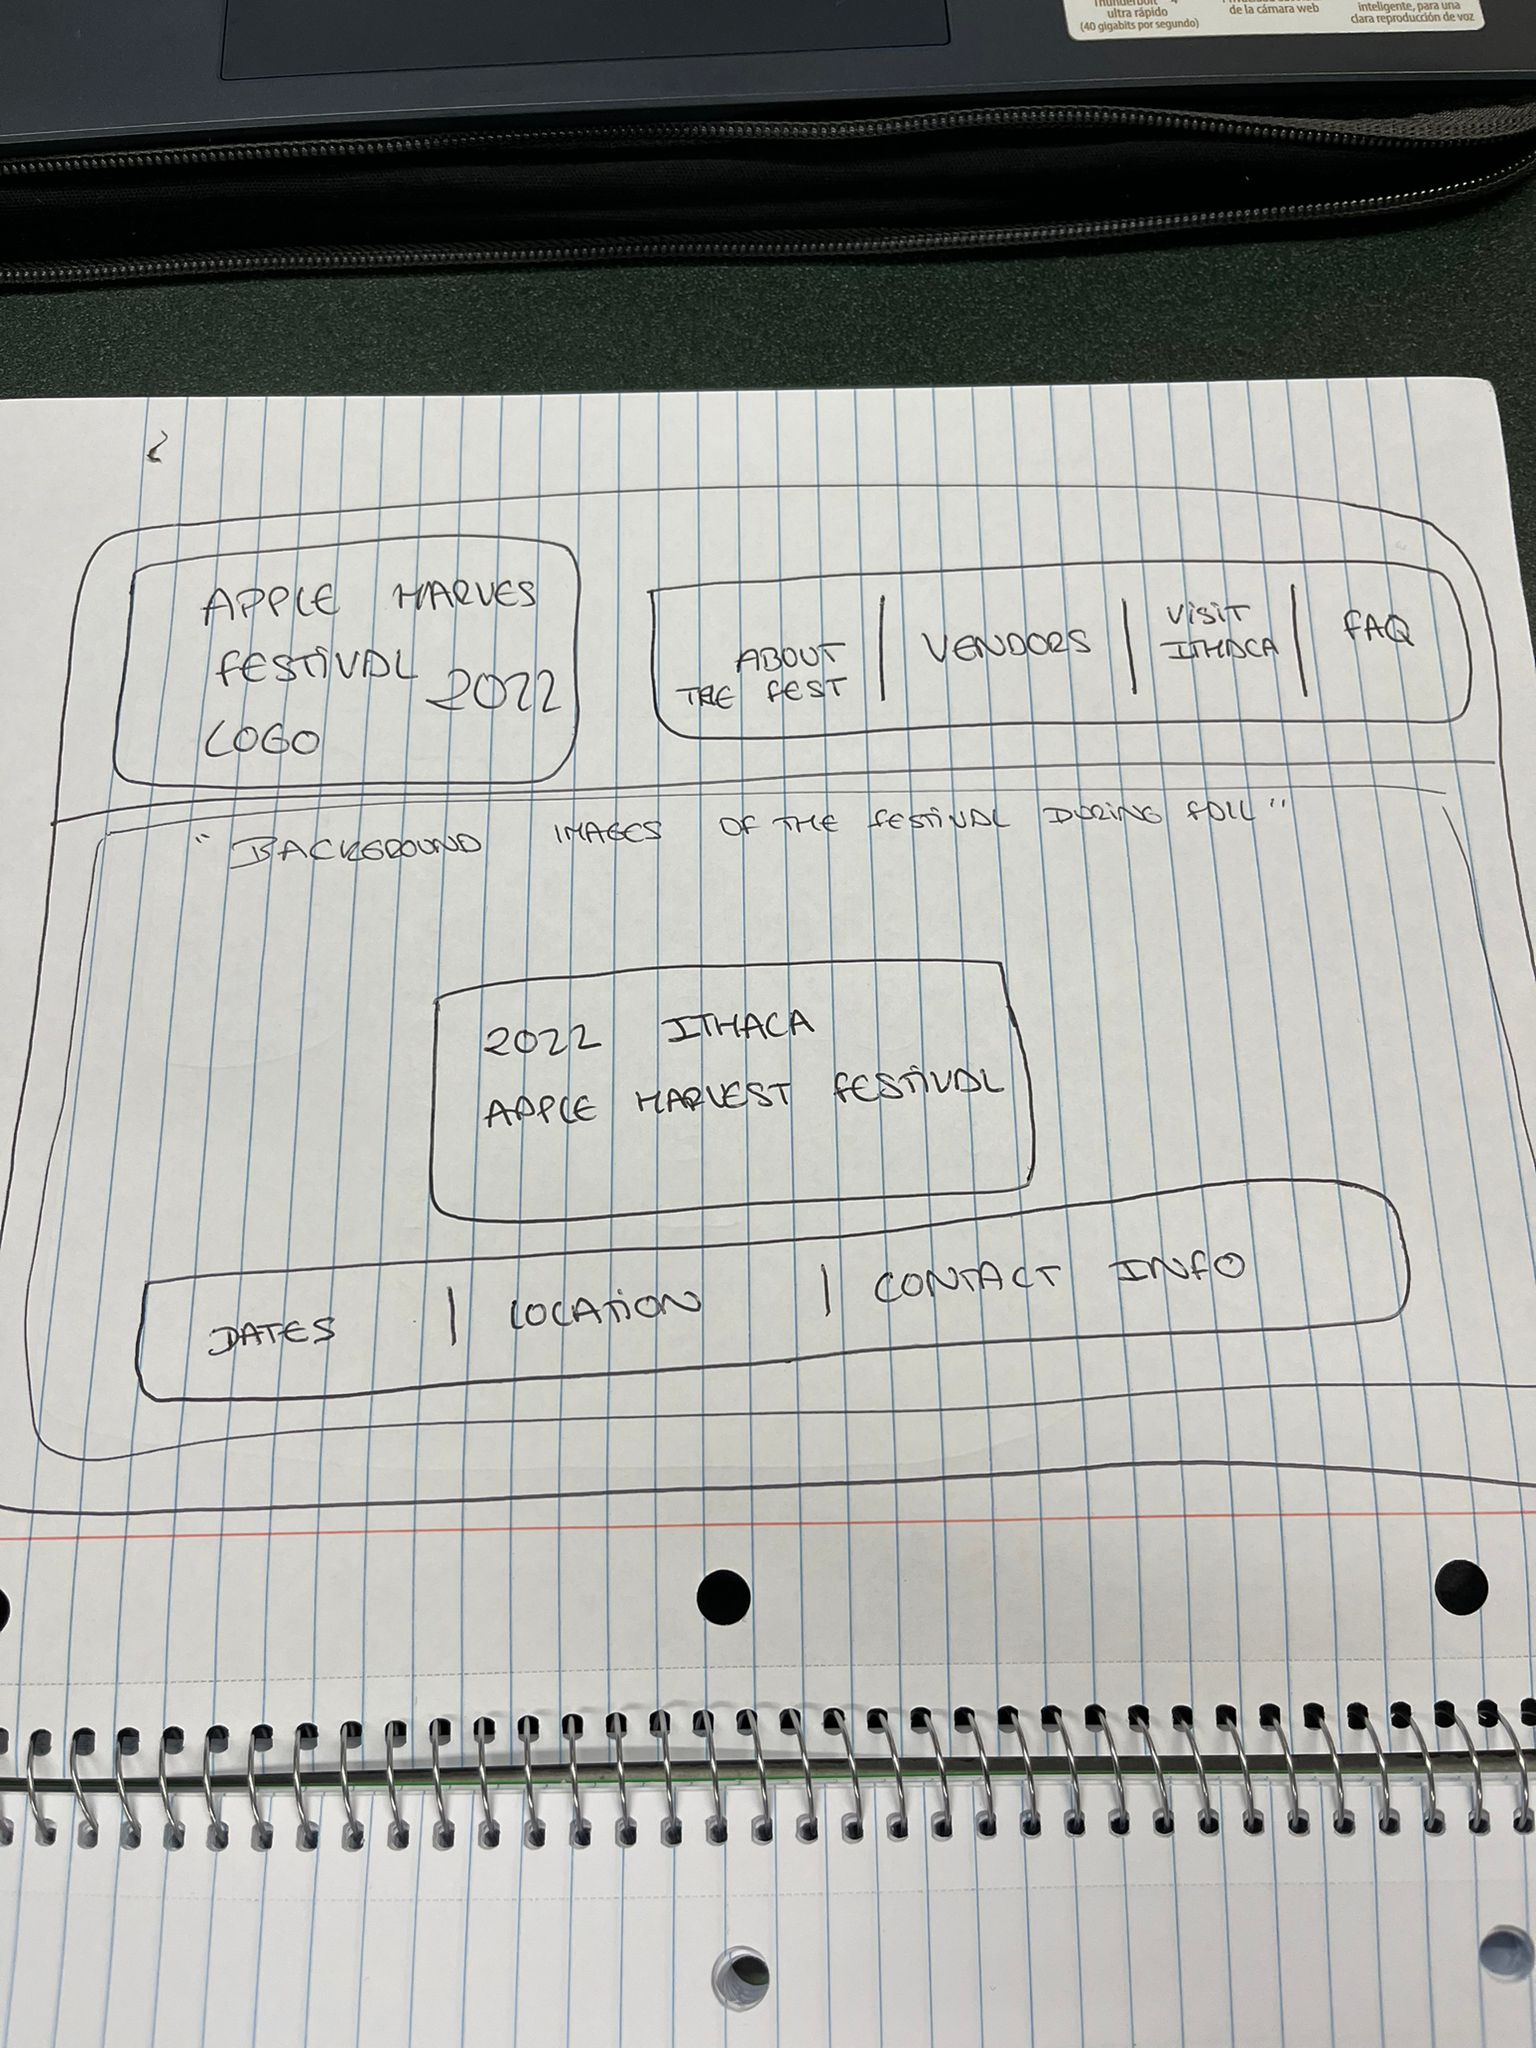 Thunderbolt™ 4
ultra rápido
(40 gigabits por segundo)
de la cámara web
inteligente, para una
clara reproducción de voz
APPLE HARVES
FESTIVAL 2022
LOGO
ABOUT
THE FEST
VENDORS
VISIT
ITHACA
FAQ
"BACKGROUND IMAGES OF THE FESTIVAL DURING FALL"
2022 ITHACA
APPLE HARVEST FESTIVAL
DATES | LOCATION | CONTACT INFO